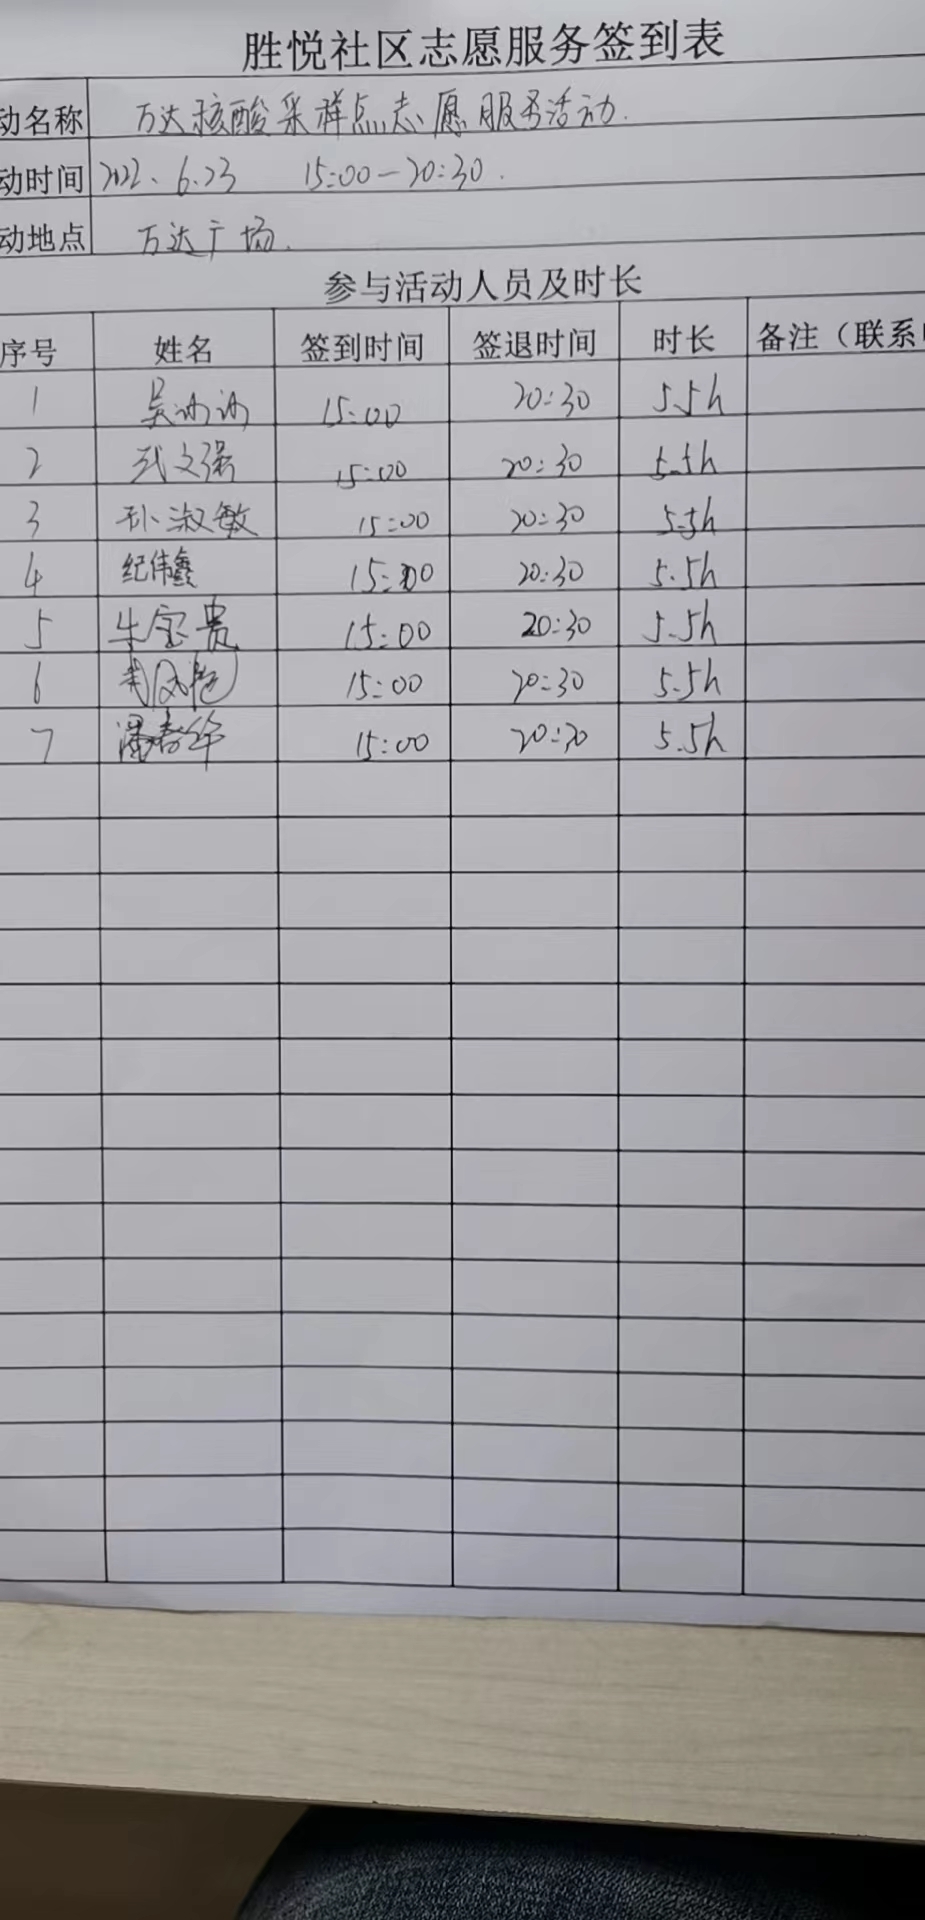 胜悦社区志愿服务签到表
动名称 万达核酸采样点志愿服务活动.
动时间 2022.6.23 15:00—20:30.
动地点 万达广场.
参与活动人员及时长
序号 姓名 签到时间 签退时间 时长 备注（联系
1 吴 15:00 20:30 5.5h
2 武文强 15:00 20:30 5.5h
3 孙淑敏 15:00 20:30 5.5h
4 纪伟鑫 15:00 20:30 5.5h
5 牛宝贵 15:00 20:30 5.5h
6 15:00 20:30 5.5h
7 潘春华 15:00 20:30 5.5h